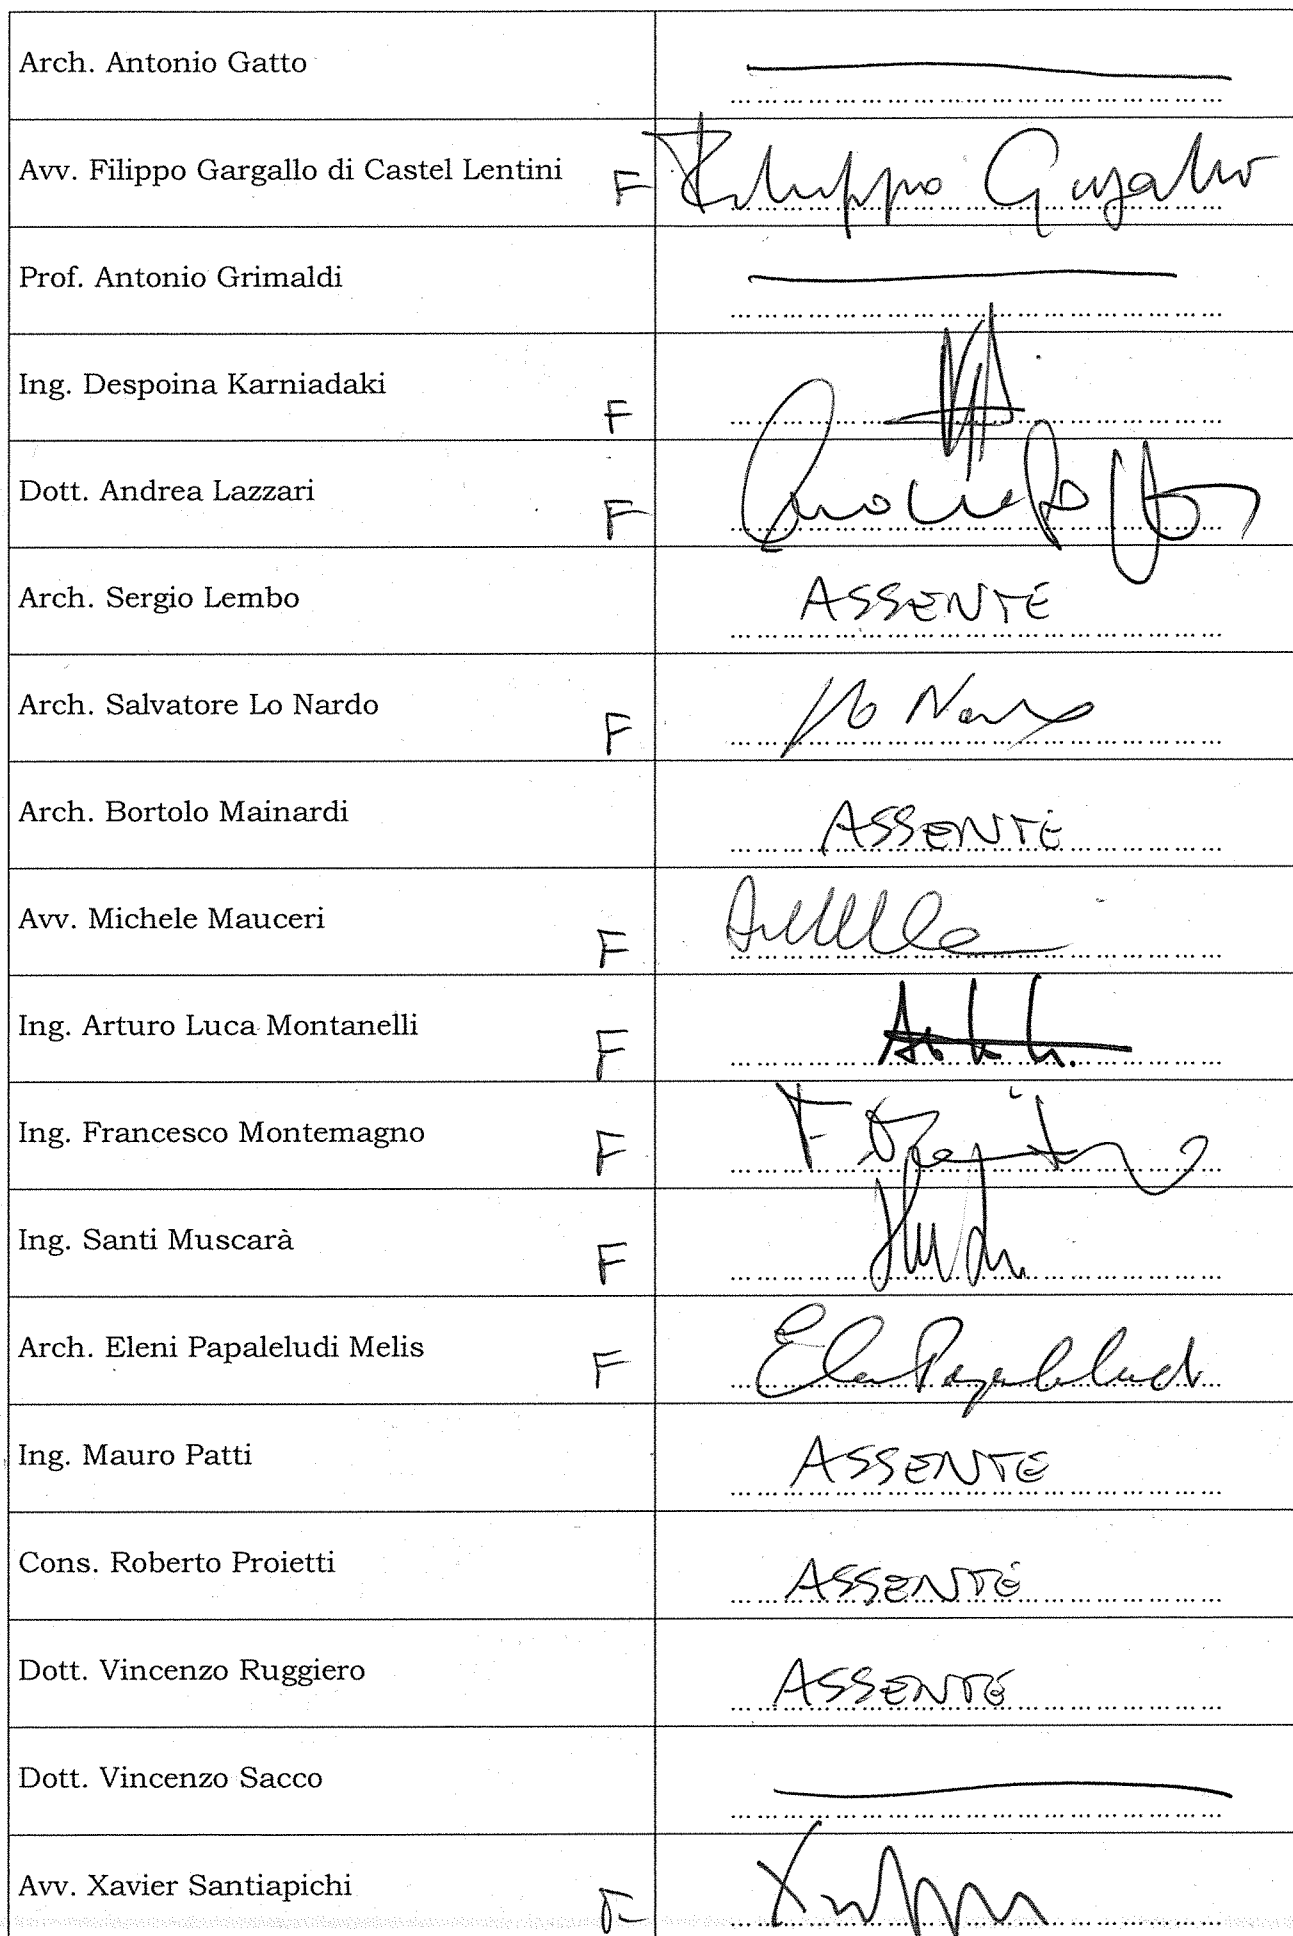 Arch. Antonio Gatto
Avv. Filippo Gargallo di Castel Lentini F Filippo Gargallo
Prof. Antonio Grimaldi
Ing. Despoina Karniadaki F
Dott. Andrea Lazzari F
Arch. Sergio Lembo ASSENTE
Arch. Salvatore Lo Nardo F Lo Nardo
Arch. Bortolo Mainardi ASSENTE
Avv. Michele Mauceri F
Ing. Arturo Luca Montanelli F
Ing. Francesco Montemagno F
Ing. Santi Muscarà F
Arch. Eleni Papaleludi Melis F
Ing. Mauro Patti ASSENTE
Cons. Roberto Proietti ASSENTE
Dott. Vincenzo Ruggiero ASSENTE
Dott. Vincenzo Sacco
Avv. Xavier Santiapichi F